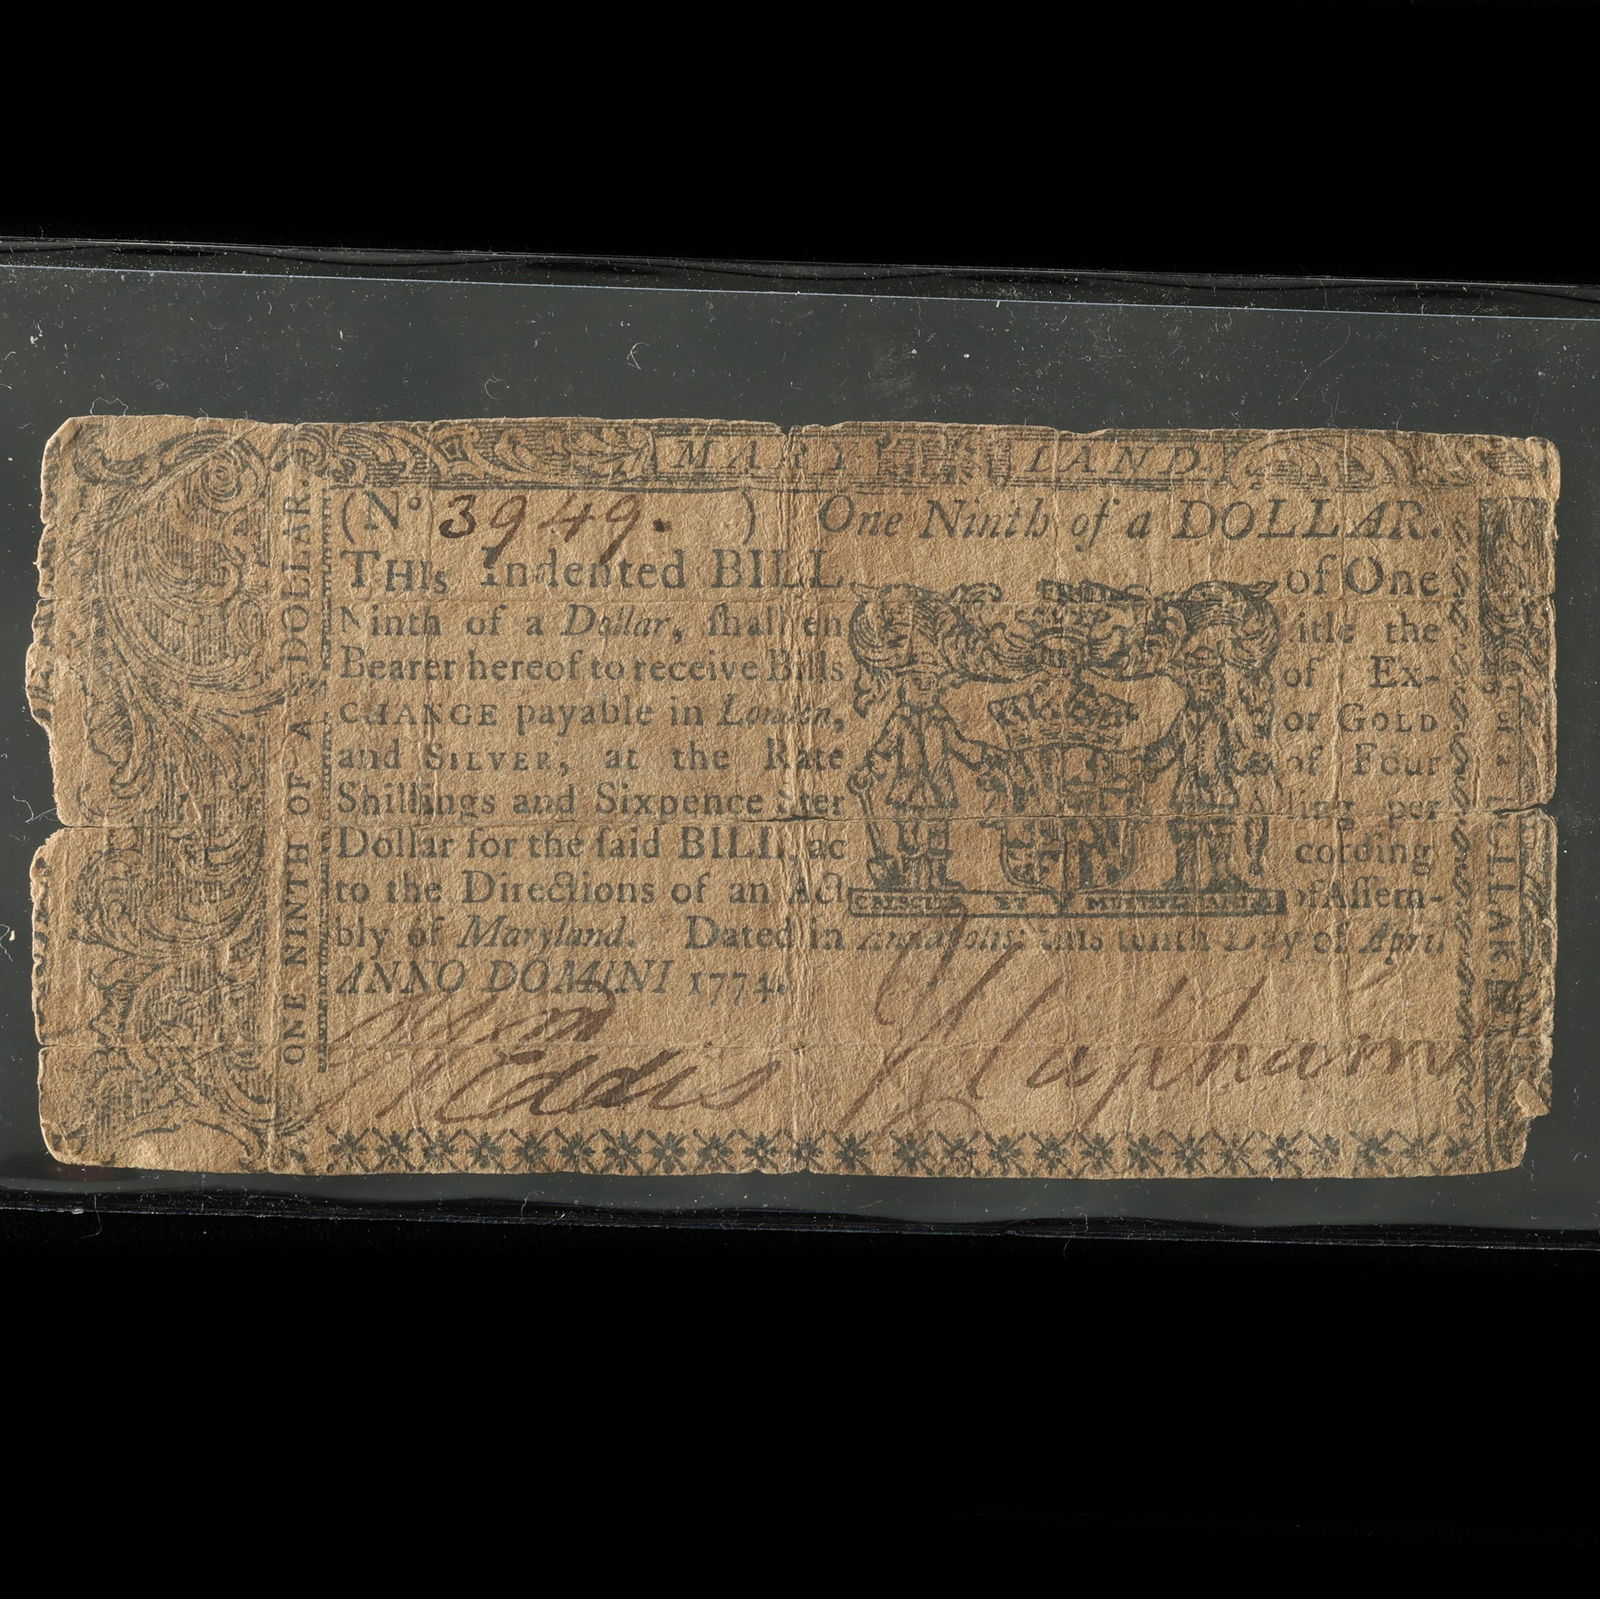 MARY LAND.
(No 3949. ) One Ninth of a DOLLAR.
THIS Indented BILL of One
Ninth of a Dollar, ſhall en itle the
Bearer hereof to receive Bills of Ex-
CHANGE payable in London, or GOLD
and SILVER, at the Rate of Four
Shillings and Sixpence Ster ling per
Dollar for the ſaid BILL, ac cording
to the Directions of an Act of Aſſem-
bly of Maryland. Dated in Annapolis, this tenth Day of April
ANNO DOMINI 1774.
CRESCITE ET MULTIPLICAMINI
Wm
Eddis
J Clapham
ONE NINTH OF A DOLLAR.